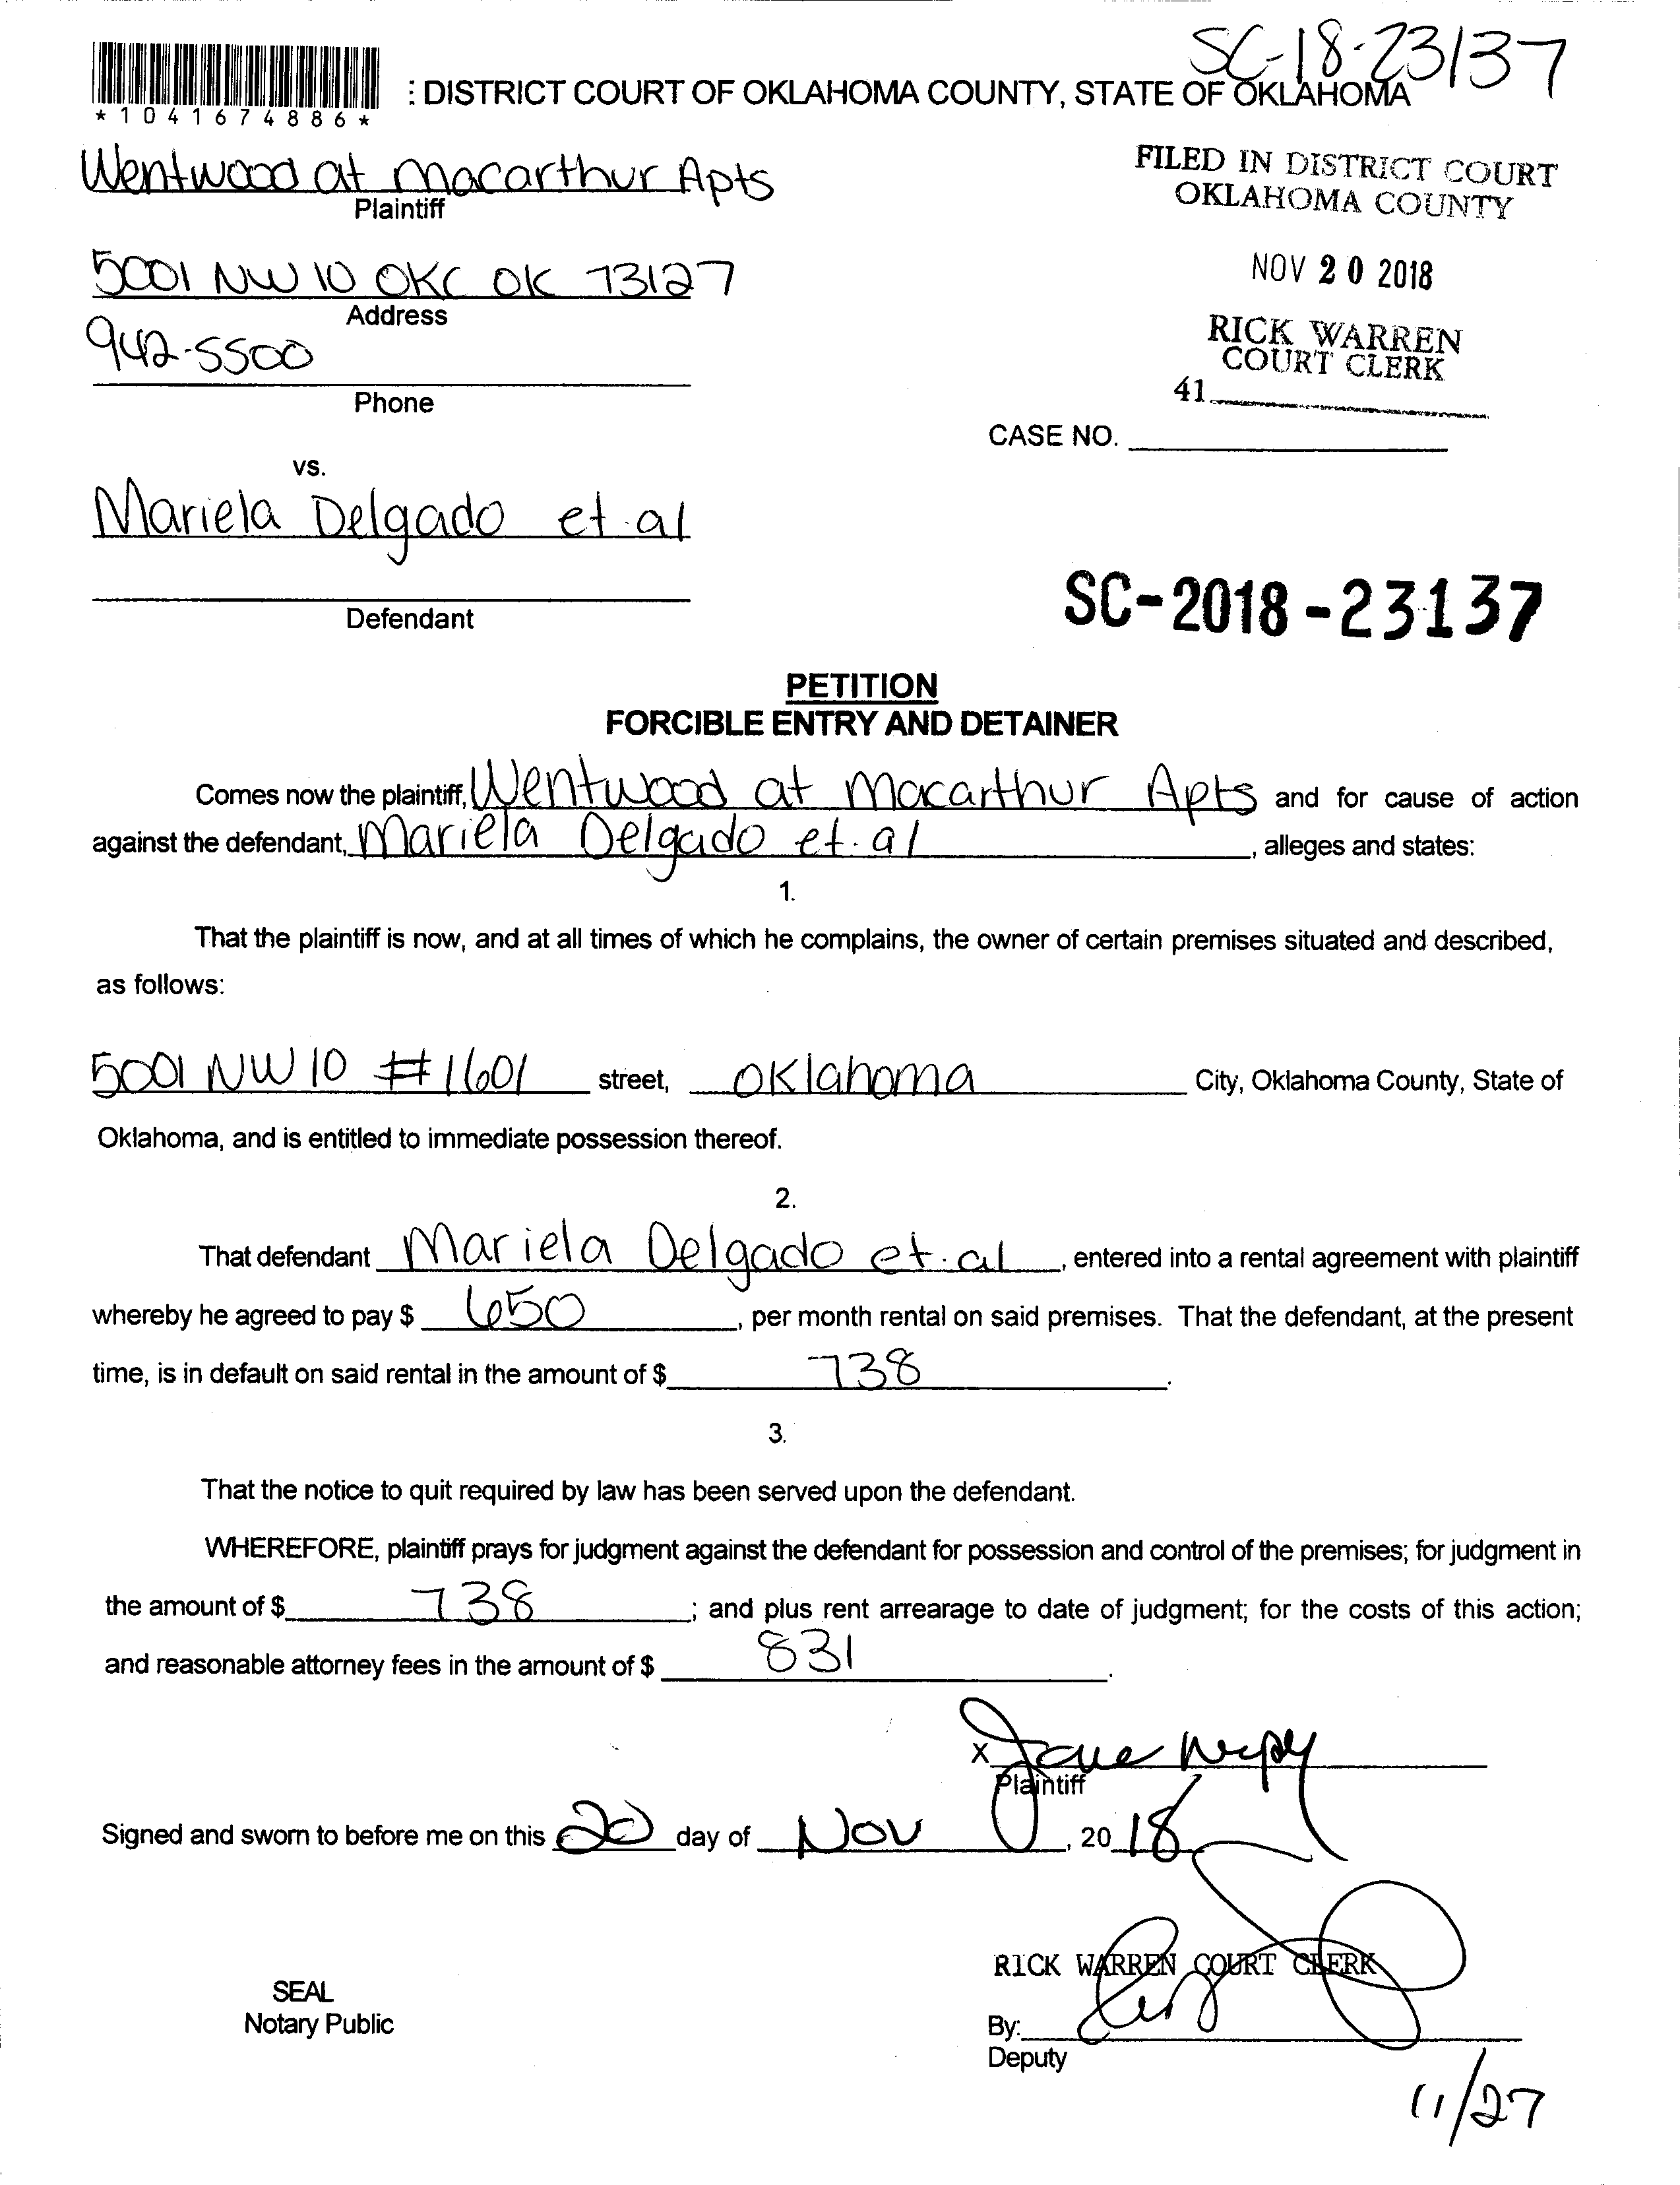 SC-18-23137
*1041674886*
: DISTRICT COURT OF OKLAHOMA COUNTY, STATE OF OKLAHOMA
Wentwood at Macarthur Apts
Plaintiff
FILED IN DISTRICT COURT
OKLAHOMA COUNTY
5001 NW 10 OKC OK 73127
Address
NOV 20 2018
942-5500
Phone
RICK WARREN
COURT CLERK
41
CASE NO.
vs.
Mariela Delgado et.al
Defendant
SC-2018-23137
PETITION
FORCIBLE ENTRY AND DETAINER
Comes now the plaintiff, Wentwood at Macarthur Apts and for cause of action
against the defendant, Mariela Delgado et.al, alleges and states:
1.
That the plaintiff is now, and at all times of which he complains, the owner of certain premises situated and described,
as follows:
5001 NW 10 #1601 street, Oklahoma City, Oklahoma County, State of
Oklahoma, and is entitled to immediate possession thereof.
2.
That defendant Mariela Delgado et.al, entered into a rental agreement with plaintiff
whereby he agreed to pay $ 650, per month rental on said premises. That the defendant, at the present
time, is in default on said rental in the amount of $ 738.
3.
That the notice to quit required by law has been served upon the defendant.
WHEREFORE, plaintiff prays for judgment against the defendant for possession and control of the premises; for judgment in
the amount of $ 738; and plus rent arrearage to date of judgment; for the costs of this action;
and reasonable attorney fees in the amount of $ 831.
X
Plaintiff
Signed and sworn to before me on this 20 day of Nov, 2018
RICK WARREN COURT CLERK
SEAL
Notary Public
By:
Deputy
11/27